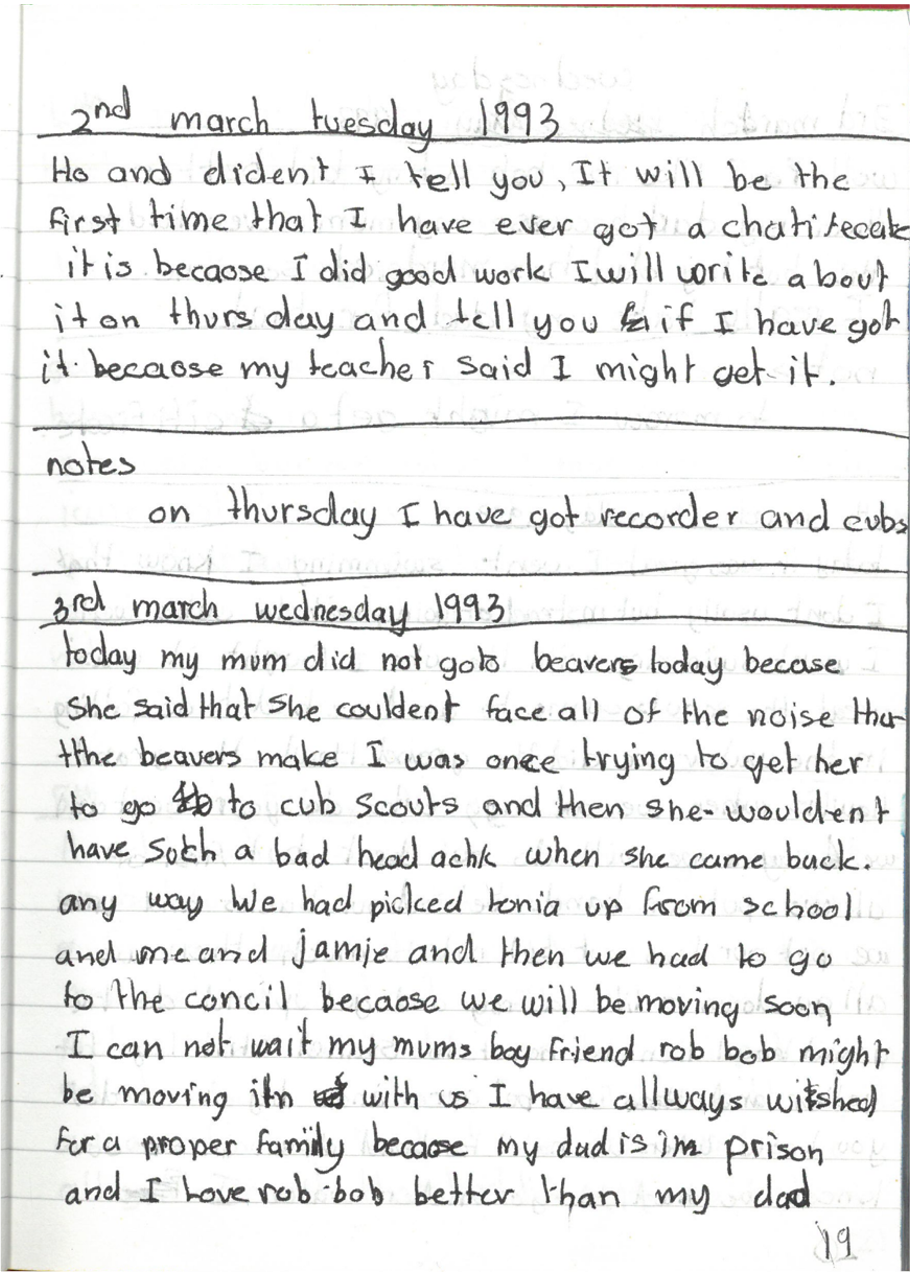 2nd march tuesday 1993
Ho and dident I tell you, It will be the
first time that I have ever got a chatitecate
it is becaose I did good work I will write about
it on thursday and tell you if I have got
it becaose my teacher said I might get it.
notes
on thursday I have got recorder and cubs
3rd march wednesday 1993
today my mum did not goto beavers today becase
she said that she couldent face all of the noise that
tthe beavers make I was once trying to get her
to go to cub scouts and then she wouldent
have sotch a bad head achk when she came back.
any way we had picked tonia up from school
and me and jamie and then we had to go
to the concil becaose we will be moving soon
I can not wait my mums boy friend rob bob might
be moving in with us I have allways wished
for a proper family becaose my dad is in prison
and I Love rob-bob better than my dad
19